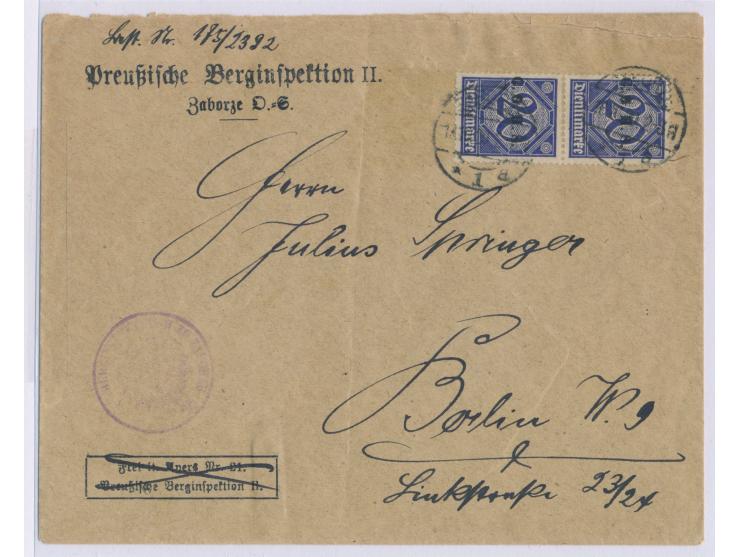 Best. Nr. 185/2392
Preußische Berginspektion II.
Zaborze O.-S.
20 20
Dienstmarke Dienstmarke
Herrn
Julius Springer
Berlin W. 9
Linkstraße 23/24
Frei lt. Avers Nr. 21.
Preußische Berginspektion II.